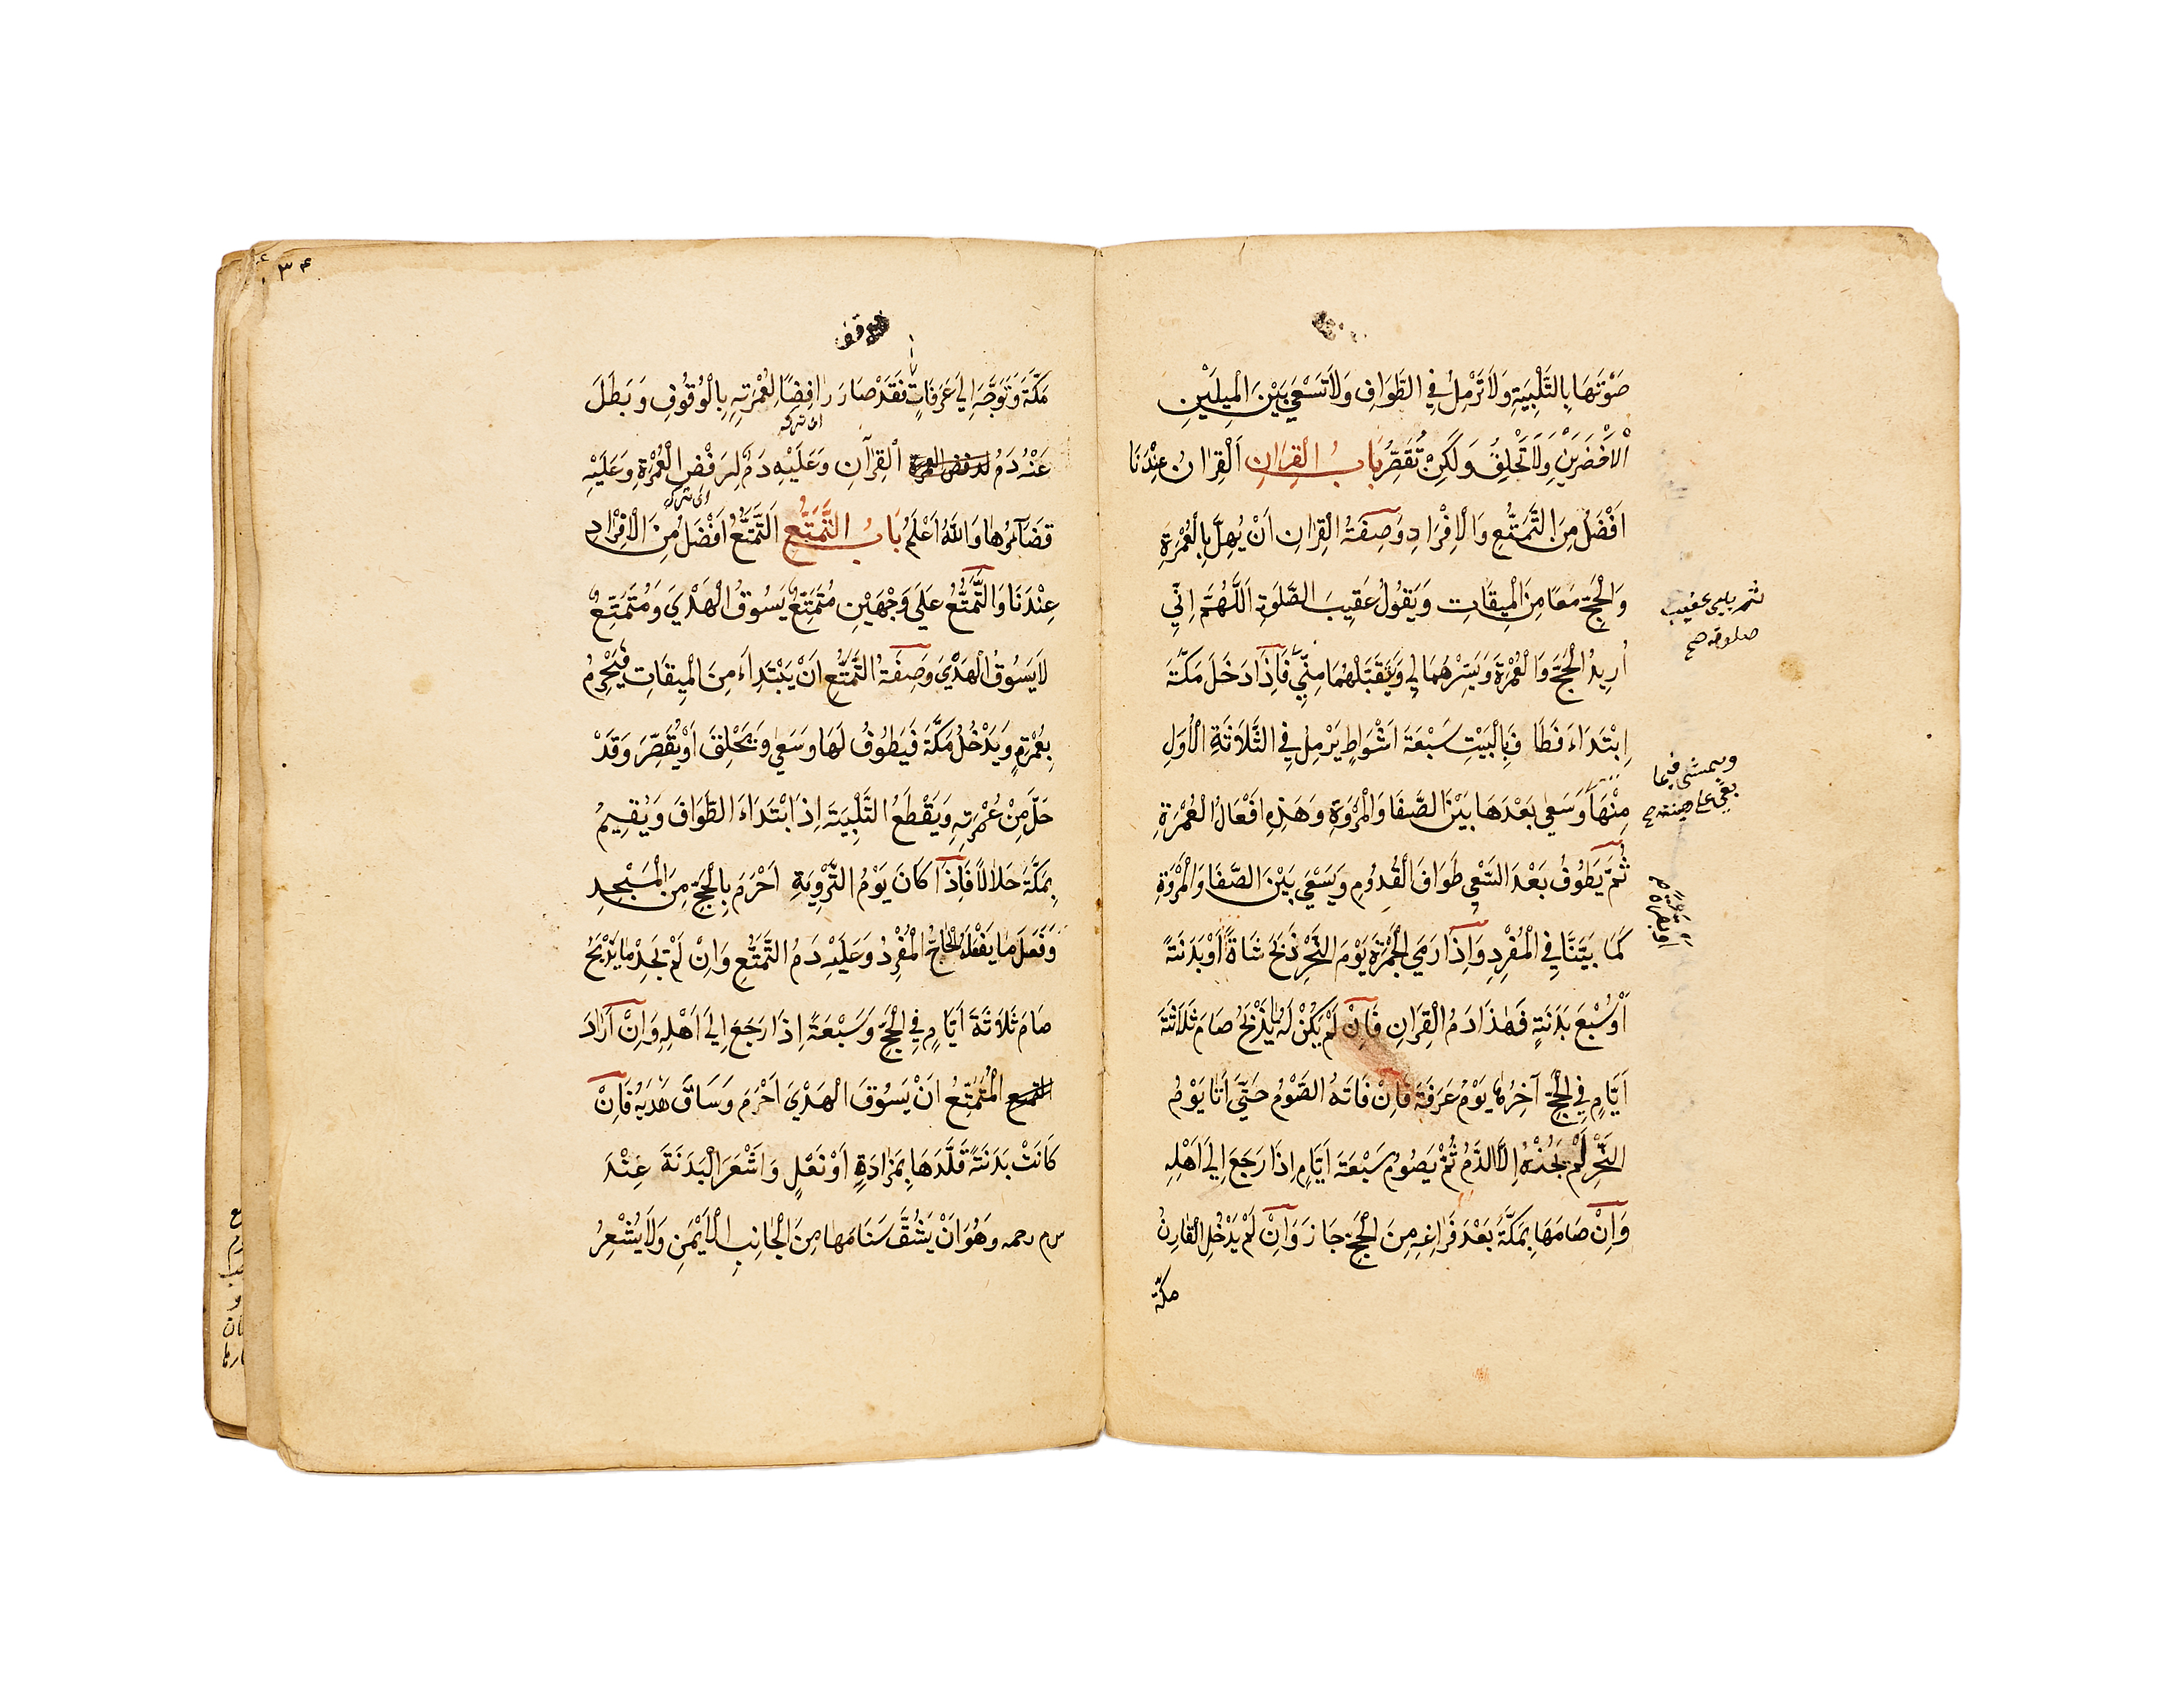 صَوْتَهَا بِالتَّلْبِيَةِ وَلَا تَرْمِلُ فِي الطَّوَافِ وَلَا تَسْعَي بَيْنَ الْمِيلَيْنِ
الْاَخْضَرَيْنِ وَلَا تَحْلِقُ وَلَكِنْ تُقَصِّرُ بَابُ الْقِرَانِ اَلْقِرَانُ عِنْدَنَا
اَفْضَلُ مِنَ التَّمَتُّعِ وَالْاِفْرَادِ وَصِفَةُ الْقِرَانِ اَنْ يُهِلَّ بِالْعُمْرَةِ
وَالْحَجِّ مَعًا مِنَ الْمِيقَاتِ وَيَقُولُ عَقِيبَ الصَّلَوةِ اَللَّهُمَّ اِنِّي
اُرِيدُ الْحَجَّ وَالْعُمْرَةَ وَيَسِّرْهُمَا لِي وَتَقَبَّلْهُمَا مِنِّي فَاِذَا دَخَلَ مَكَّةَ
اِبْتَدَاءَ فَطَافَ بِالْبَيْتِ سَبْعَةَ اَشْوَاطٍ يَرْمِلُ فِي الثَّلَاثَةِ الْاُوَلِ
مِنْهَا وَسَعَي بَعْدَهَا بَيْنَ الصَّفَا وَالْمَرْوَةِ وَهَذِهِ اَفْعَالُ الْعُمْرَةِ
ثُمَّ يَطُوفُ بَعْدَ السَّعْيِ طَوَافَ الْقُدُومِ وَيَسْعَي بَيْنَ الصَّفَا وَالْمَرْوَةِ
كَمَا بَيَّنَّا فِي الْمُفْرِدِ وَاِذَا رَمَي الْجَمْرَةَ يَوْمَ النَّحْرِ ذَبَحَ شَاةً اَوْ بَدَنَةً
اَوْ سُبْعَ بَدَنَةٍ فَهَذَا دَمُ الْقِرَانِ فَاِنْ لَمْ يَكُنْ لَهُ مَا يَذْبَحُ صَامَ ثَلَاثَةَ
اَيَّامٍ فِي الْحَجِّ آخِرُهَا يَوْمُ عَرَفَةَ فَاِنْ فَاتَهُ الصَّوْمُ حَتَّي اَتَا يَوْمُ
النَّحْرِ لَمْ يُجْزْهُ اِلَّا الدَّمُ ثُمَّ يَصُومُ سَبْعَةَ اَيَّامٍ اِذَا رَجَعَ اِلَي اَهْلِهِ
وَاِنْ صَامَهَا بِمَكَّةَ بَعْدَ فَرَاغِهِ مِنَ الْحَجِّ جَازَ وَاِنْ لَمْ يَدْخُلِ الْقَارِنُ
مكّة
ثم يلبى عقيب
صلوته صح
ويمشى فيما
بقى على هينته صح
٣٤
مَكَّةَ وَتَوَجَّهَ اِلَي عَرَفَاتٍ فَقَدْ صَارَ رَافِضًا لِعُمْرَتِهِ بِالْوُقُوفِ وَبَطَلَ
اى تركه
عَنْهُ دَمُ الْقِرَآنِ وَعَلَيْهِ دَمٌ لِرَفْضِ الْعُمْرَةِ وَعَلَيْهِ
اى تركه
قَضَآءُوهَا وَاللهُ اَعْلَمُ بَابُ التَّمَتُّعِ اَلتَّمَتُّعُ اَفْضَلُ مِنَ الْاِفْرَادِ
عِنْدَنَا وَالتَّمَتُّعُ عَلَي وَجْهَيْنِ مُتَمَتِّعٌ يَسُوقُ الْهَدْيَ وَمُتَمَتِّعٌ
لَا يَسُوقُ الْهَدْيَ وَصِفَةُ التَّمَتُّعِ اَنْ يَبْتَدِاءَ مِنَ الْمِيقَاتِ فَيُحْرِمُ
بِعُمْرَةٍ وَيَدْخُلُ مَكَّةَ فَيَطُوفُ لَهَا وَسَعَي وَيَحْلِقَ اَوْ يُقَصِّرَ وَقَدْ
حَلَّ مِنْ عُمْرَتِهِ وَيَقْطَعُ التَّلْبِيَةَ اِذَا ابْتَدَاءَ الطَّوَافَ وَيُقِيمُ
بِمَكَّةَ حَلَالًا فَاِذَا كَانَ يَوْمُ التَّرْوِيَةِ اَحْرَمَ بِالْحَجِّ مِنَ الْمَسْجِدِ
وَفَعَلَ مَا يَفْعَلُهُ الْحَاجُّ الْمُفْرِدُ وَعَلَيْهِ دَمُ التَّمَتُّعِ وَاِنْ لَمْ يَجِدْ مَا يَذْبَحُ
صَامَ ثَلَاثَةَ اَيَّامٍ فِي الْحَجِّ وَسَبْعَةً اِذَا رَجَعَ اِلَي اَهْلِهِ وَاِنْ اَرَادَ
الْمُتَمَتِّعُ اَنْ يَسُوقَ الْهَدْيَ اَحْرَمَ وَسَاقَ هَدْيَهُ فَاِنْ
كَانَتْ بَدَنَةً قَلَّدَهَا بِمَزَادَةٍ اَوْ نَعْلٍ وَاَشْعَرَ الْبَدَنَةَ عِنْدَ
س م رحمه وَهُوَ اَنْ يَشُقَّ سَنَامَهَا مِنَ الْجَانِبِ الْاَيْمَنِ وَلَا يُشْعِرُ